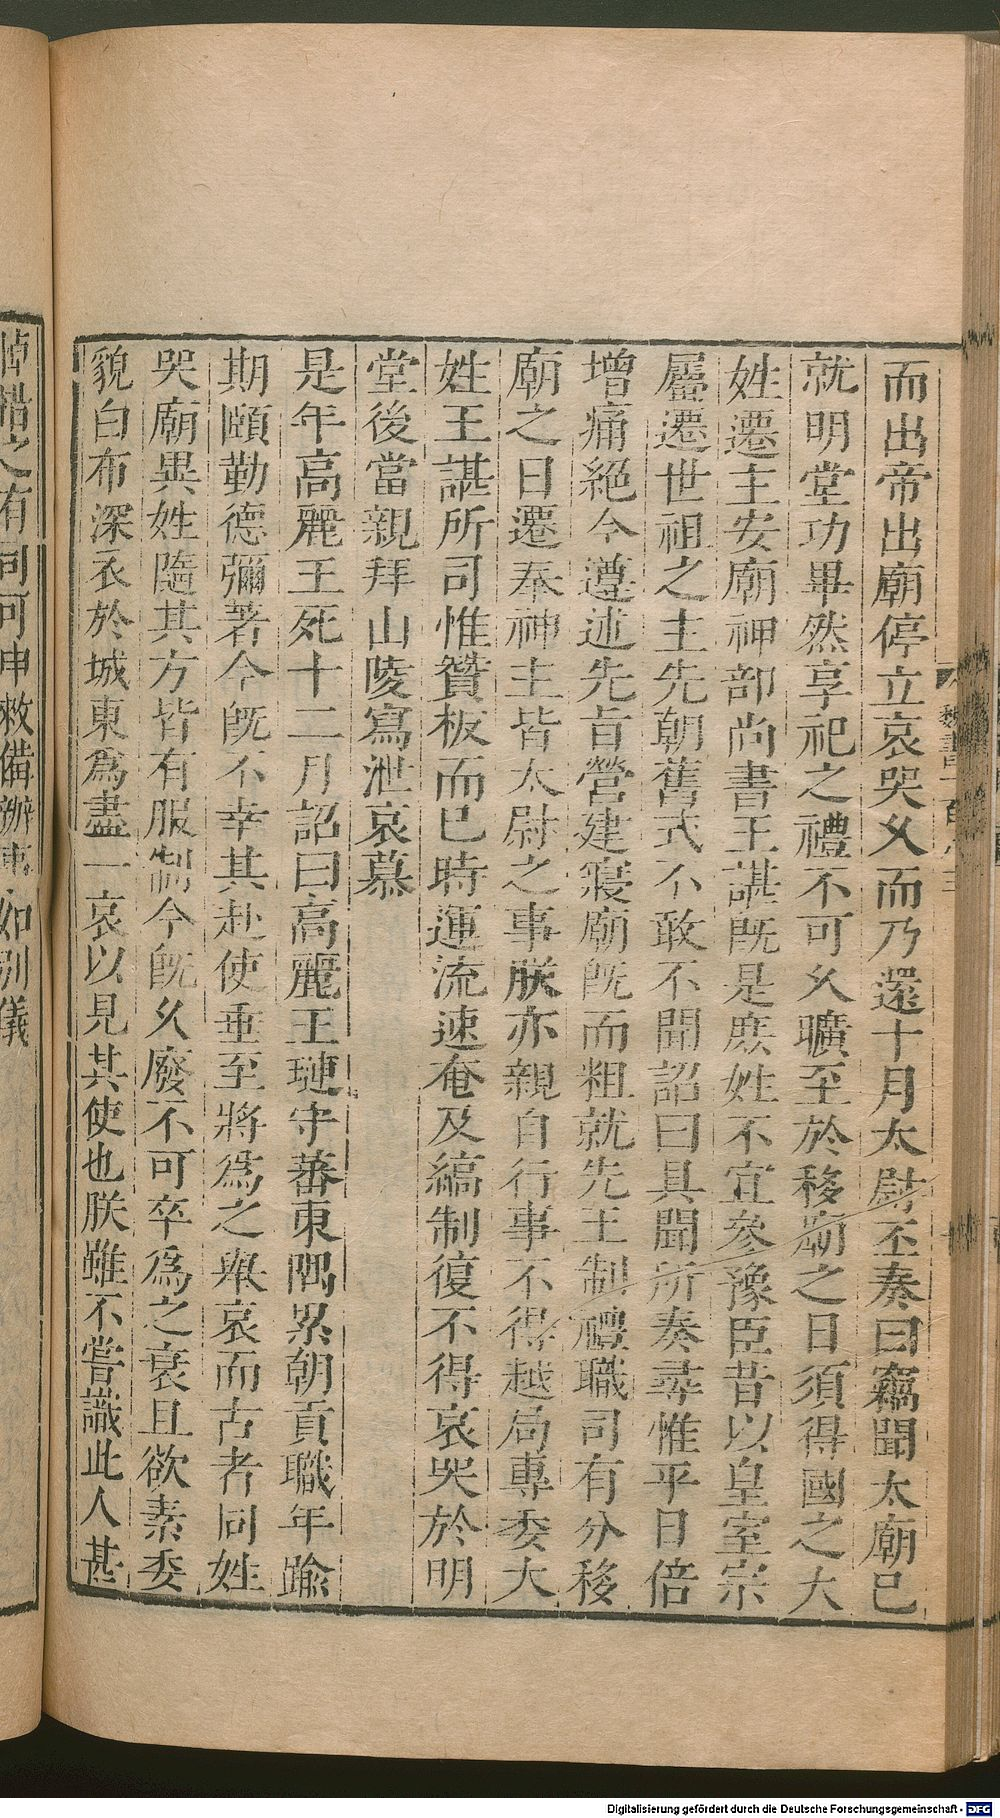 而出帝出廟停立哀哭久而乃還十月太尉丕奏曰竊聞太廟已
就明堂功畢然享祀之禮不可久曠至於移廟之日須得國之大
姓遷主安廟神部尚書王諶既是庶姓不宜參豫臣昔以皇室宗
屬遷世祖之主先朝舊式不敢不聞詔曰具聞所奏尋惟平日倍
增痛絕今遵述先旨營建寢廟既而粗就先王制禮職司有分移
廟之日遷奉神主皆太尉之事朕亦親自行事不得越局專委大
姓王諶所司惟贊板而已時運流速奄及縞制復不得哀哭於明
堂後當親拜山陵寫泄哀慕
是年高麗王死十二月詔曰高麗王璉守蕃東隅累朝貢職年踰
期頤勤德彌著今既不幸其赴使垂至將為之舉哀而古者同姓
哭廟異姓隨其方皆有服制今既久廢不可卒為之衰且欲素委
貌白布深衣於城東為盡一哀以見其使也朕雖不嘗識此人甚
悼惜之有司可申敕備辦事如別儀
魏書一百八
Digitalisierung gefördert durch die Deutsche Forschungsgemeinschaft - DFG